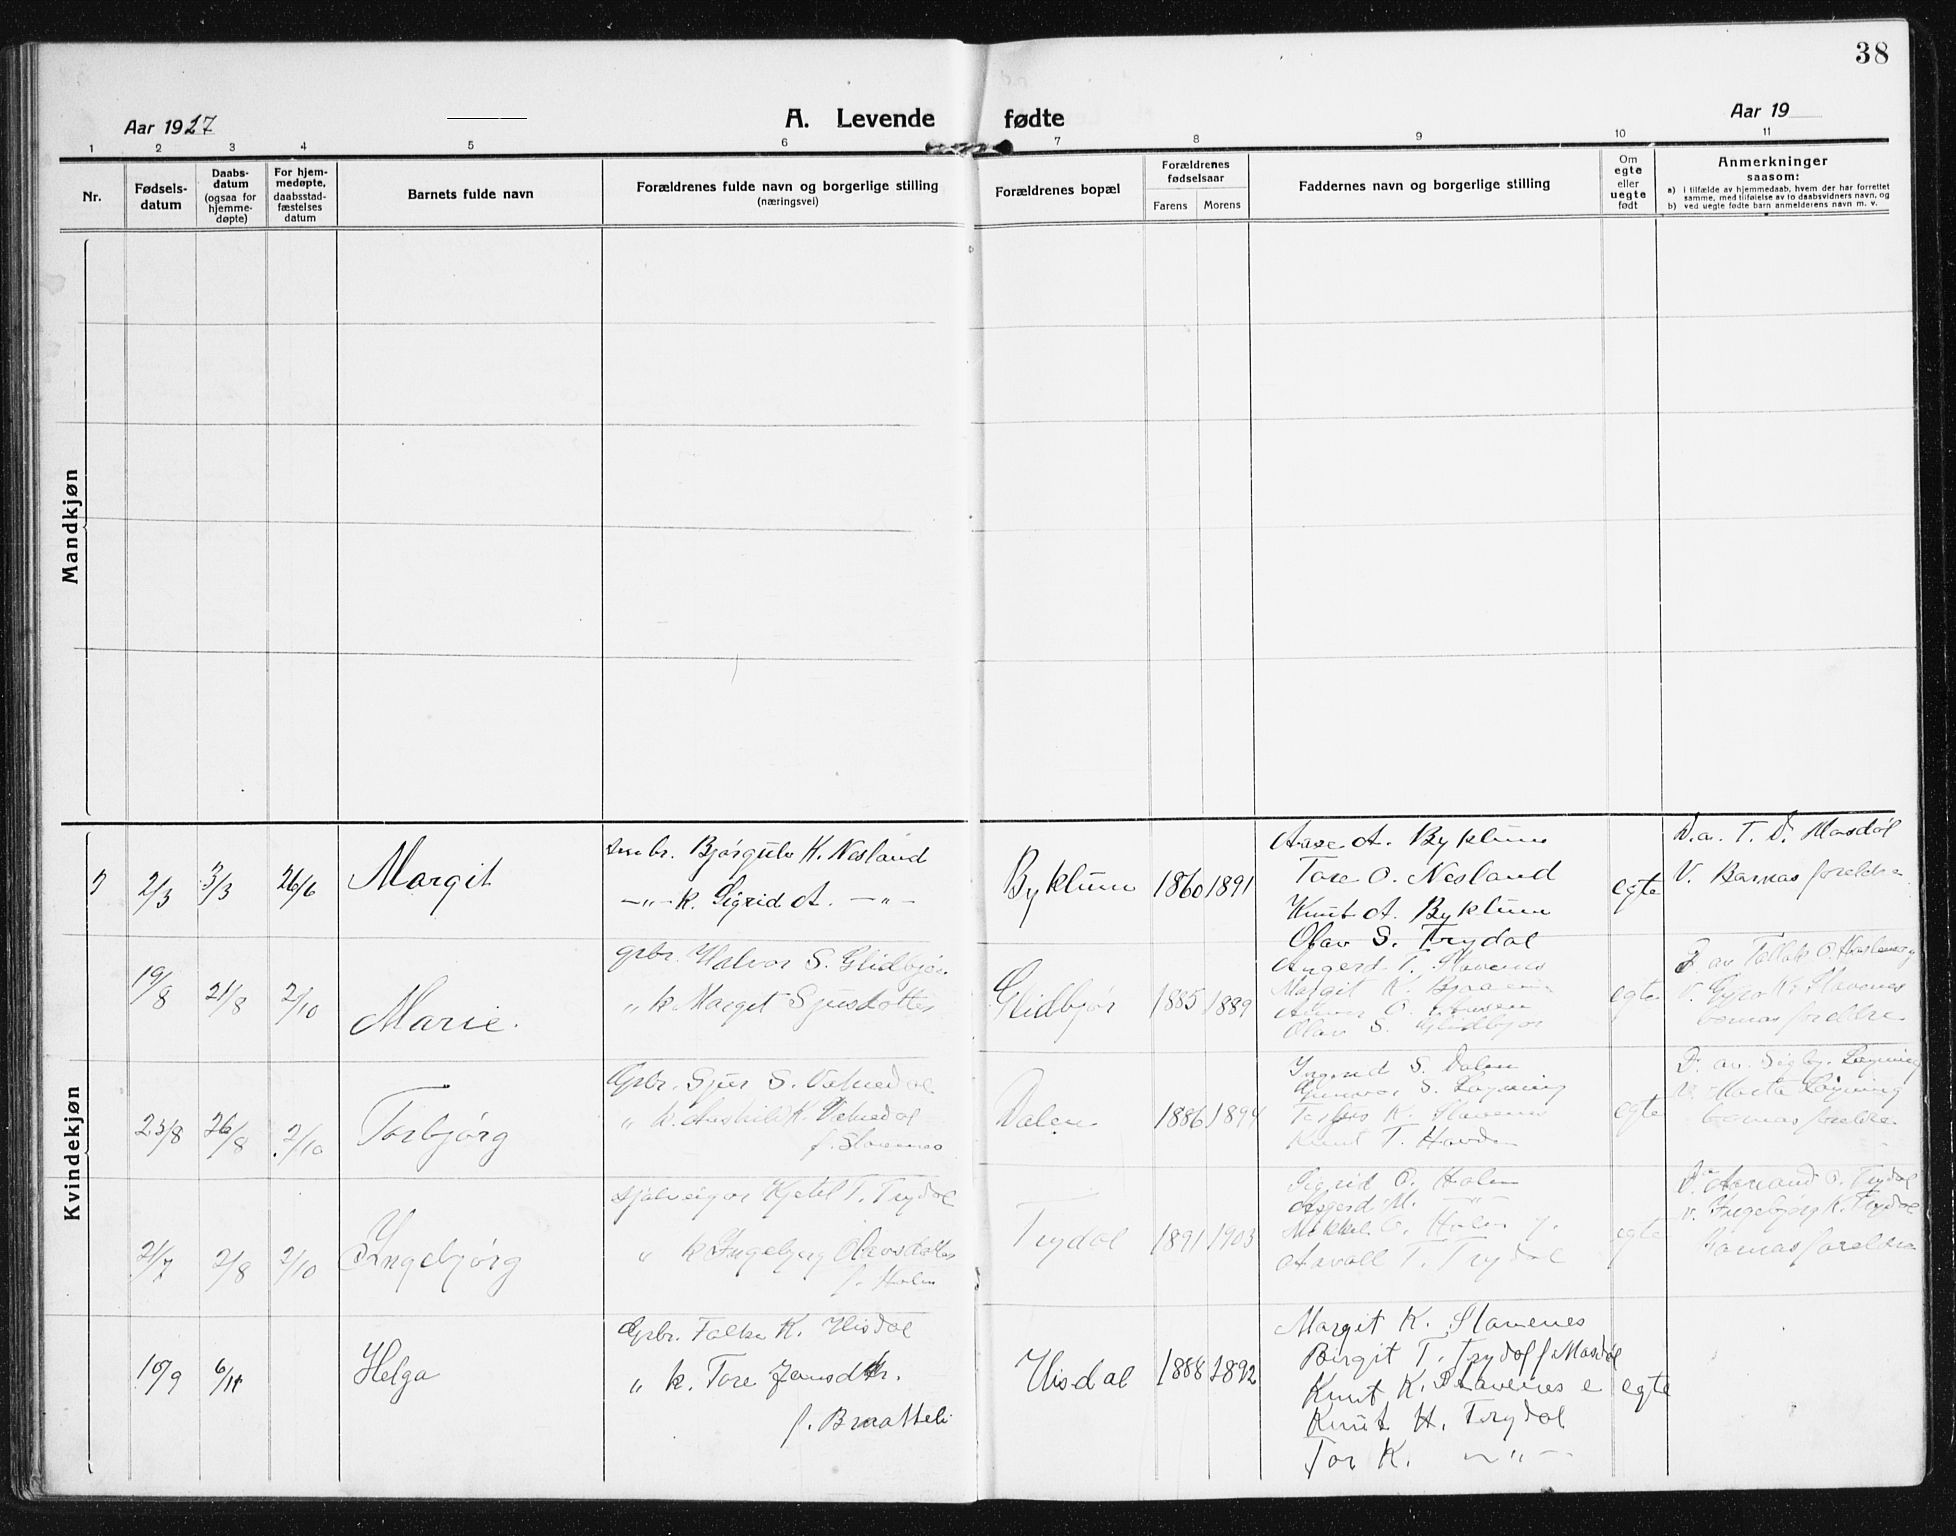 38
Aar 1927
A. Levende fødte
Aar 19
1 2 3 4 5 6 7 8 9 10 11
Nr.
Fødsels-
datum
Daabs-
datum
(ogsaa for
hjemme-
døpte)
For hjem-
medøpte,
daabsstad-
fæstelses
datum
Barnets fulde navn
Forældrenes fulde navn og borgerlige stilling
(næringsvei)
Forældrenes bopæl
Forældrenes
fødselsaar
Farens Morens
Faddernes navn og borgerlige stilling
Om
egte
eller
uegte
født
Anmerkninger
saasom:
a) i tilfælde av hjemmedaab, hvem der har forrettet
samme, med tilføielse av to daabsvidners navn, og
b) ved uegte fødte barn anmelderens navn m. v.
Mandkjøn
Kvindekjøn
2/3 3/3 26/6 Margit
br. Bjørgulv K. Nesland
—„— k. Sigrid A. —„—
Byklum 1860 1891
Aase A. Byklum
Tore O. Nesland
Knut A. Byklum
Olav S. Trydal
egte
D.a. T. D. Mosdøl
V. Barnas foreldre
19/8 21/8 2/10 Marie.
grbr. Halvor S. Glidbjør
„ k. Margit Sjusdotter
Glidbjør 1885 1889
Angerd T. Slavenes
Margit K.
Olav S. Glidbjør
egte
D. av Tellak O.
v. Gyro K. Slavenes
bornas foreldre
23/8 26/8 2/10 Torbjørg
Grbr. Sjur S. Vatnedal
„ k. K. Vatnedal
f. Slavenes
Dalen 1886 1894
Ingerid S. Dalen
Gunvor S. Løyning
K. Slavenes
Knut T. Hovden
egte
D. av. Sigbj. Løyning
V. Marta Løyning
bornas foreldre
21/7 2/8 2/10 Ingebjørg
sjølveigar Kjetel T. Trydal
„ k Ingebjørg Olavsdotter
f. Holen
Trydal 1891 1903
Sigrid O. Holen
Asgerd M. —„—
Mikkel O. Holen
Aavald T. Trydal
egte
D. a O. Trydal
v. Ingebjørg K. Trydal
Bornas foreldre
10/9 6/11 Helga
Grbr. Falke K. Hisdal
„ k. Tore Jonsdtr.
f. Braatteli
Hisdal 1888 1892
Margit K. Slavenes
Birgit T. Trydal f. Mosdøl
Knut K. Slavenes
Knut H. Trydal
Tor K. —„—
egte